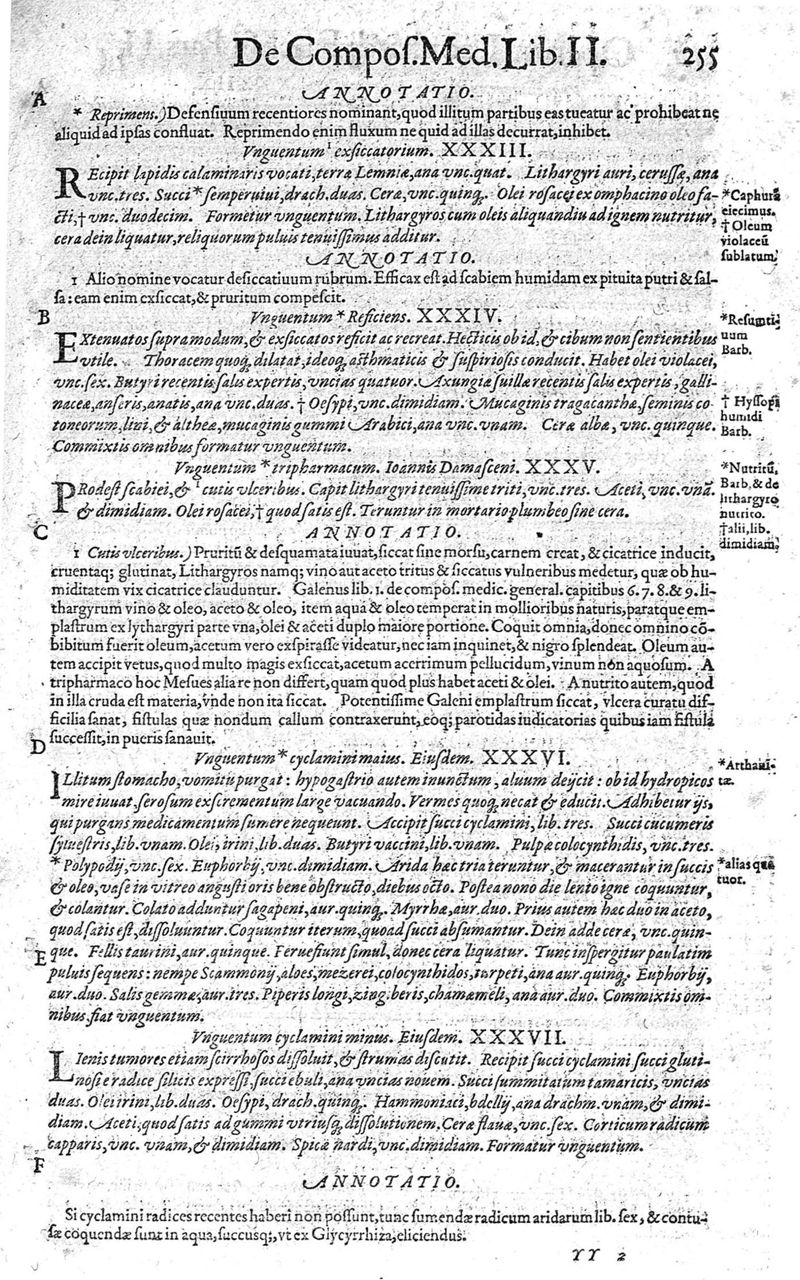 De Compos. Med. Lib. II. 255
A
ANNOTATIO.
* Reprimens.) Defensiuum recentiores nominant, quod illitum partibus eas tueatur ac prohibeat ne
aliquid ad ipsas confluat. Reprimendo enim fluxum ne quid ad illas decurrat, inhibet.
Vnguentum ¹ exsiccatorium. XXXIII.
REcipit lapidis calaminaris vocati, terræ Lemniæ, ana vnc. quat. Lithargyri auri, cerussæ, ana
vnc. tres. Succi * semperuiui, drach. duas. Ceræ, vnc. quinq;. Olei rosacei ex omphacino oleo fa-
cti, † vnc. duodecim. Formetur vnguentum. Lithargyros cum oleis aliquandiu ad ignem nutritur,
cera dein liquatur, reliquorum puluis tenuissimus additur.
*Caphuræ
eiecimus.
† Oleum
violaceū
sublatum.
ANNOTATIO.
1 Alio nomine vocatur desiccatiuum rubrum. Efficax est ad scabiem humidam ex pituita putri & sal-
sa: eam enim exsiccat, & pruritum compescit.
B
Vnguentum * Reficiens. XXXIV.
EXtenuatos supra modum, & exsiccatos reficit ac recreat. Hecticis ob id, & cibum non sentientibus
vtile. Thoracem quoq; dilatat, ideoq; asthmaticis & suspiriosis conducit. Habet olei violacei,
vnc. sex. Butyri recentis salis expertis, vncias quatuor. Axungiæ suillæ recentis salis expertis, galli-
naceæ, anseris, anatis, ana vnc. duas. † Oesypi, vnc. dimidiam. Mucaginis tragacanthæ, seminis co-
toneorum, lini, & altheæ, mucaginis gummi Arabici, ana vnc. vnam. Ceræ albæ, vnc. quinque.
Commixtis omnibus formatur vnguentum.
*Resumti-
uum
Barb.
† Hyssopi
humidi
Barb.
Vnguentum * tripharmacum. Ioannis Damasceni. XXXV.
PRodest scabiei, & ¹ cutis vlceribus. Capit lithargyri tenuissime triti, vnc. tres. Aceti, vnc. vnā.
& dimidiam. Olei rosacei, † quod satis est. Teruntur in mortario plumbeo sine cera.
*Nutritū,
Barb. & de
lithargyro
nutrito.
†alii, lib.
dimidiam.
C
ANNOTATIO.
1 Cutis vlceribus.) Pruritū & desquamata iuuat, siccat sine morsu, carnem creat, & cicatrice inducit,
cruentaq; glutinat, Lithargyros namq; vino aut aceto tritus & siccatus vulneribus medetur, quæ ob hu-
miditatem vix cicatrice clauduntur. Galenus lib. 1. de compos. medic. general. capitibus 6. 7. 8. & 9. li-
thargyrum vino & oleo, aceto & oleo, item aqua & oleo temperat in mollioribus naturis, paratque em-
plastrum ex lythargyri parte vna, olei & aceti duplo maiore portione. Coquit omnia, donec omnino cō-
bibitum fuerit oleum, acetum vero exspirasse videatur, nec iam inquinet, & nigro splendeat. Oleum au-
tem accipit vetus, quod multo magis exsiccat, acetum acerrimum pellucidum, vinum non aquosum. A
tripharmaco hoc Mesues alia re non differt, quam quod plus habet aceti & olei. A nutrito autem, quod
in illa cruda est materia, vnde non ita siccat. Potentissime Galeni emplastrum siccat, vlcera curatu dif-
ficilia sanat, fistulas quæ nondum callum contraxerunt, eoq; parotidas iudicatorias quibus iam fistula
successit, in pueris sanauit.
D
Vnguentum * cyclamini maius. Eiusdem. XXXVI.
ILlitum stomacho, vomitu purgat: hypogastrio autem inunctum, aluum deijcit: ob id hydropicos
mire iuuat, serosum exscrementum large vacuando. Vermes quoq; necat & educit. Adhibetur ijs,
qui purgans medicamentum sumere nequeunt. Accipit succi cyclamini, lib. tres. Succi cucumeris
syluestris, lib. vnam. Olei, irini, lib. duas. Butyri vaccini, lib. vnam. Pulpæ colocynthidis, vnc. tres.
* Polypodij, vnc. sex. Euphorbij, vnc. dimidiam. Arida hæc tria teruntur, & macerantur in succis
& oleo, vase in vitreo angusti oris bene obstructo, diebus octo. Postea nono die lento igne coquuntur,
& colantur. Colato adduntur sagapeni, aur. quinq;. Myrrhæ, aur. duo. Prius autem hæc duo in aceto,
quod satis est, dissoluuntur. Coquuntur iterum, quoad succi absumantur. Dein adde ceræ, vnc. quin-
que. Fellis taurini, aur. quinque. Feruefiunt simul, donec cera liquatur. Tunc inspergitur paulatim
puluis sequens: nempe Scammonij, aloes, mezerei, colocynthidos, turpeti, ana aur. quinq;. Euphorbij,
aur. duo. Salis gemmæ, aur. tres. Piperis longi, zingiberis, chamæmeli, ana aur. duo. Commixtis om-
nibus, fiat vnguentum.
*Arthani-
tæ.
*alias qua
tuor.
E
Vnguentum cyclamini minus. Eiusdem. XXXVII.
LIenis tumores etiam scirrhosos dissoluit, & strumas discutit. Recipit succi cyclamini succi gluti-
nosi e radice silicis expressi, succi ebuli, ana vncias nouem. Succi summitatum tamaricis, vncias
duas. Olei irini, lib. duas. Oesypi, drach. quinq;. Hammoniaci, bdellij, ana drachm. vnam, & dimi-
diam. Aceti, quod satis ad gummi vtriusq; dissolutionem, Ceræ flauæ, vnc. sex. Corticum radicum
capparis, vnc. vnam, & dimidiam. Spicæ nardi, vnc. dimidiam. Formatur vnguentum.
F
ANNOTATIO.
Si cyclamini radices recentes haberi non possunt, tunc sumendæ radicum aridarum lib. sex, & contu-
sæ coquendæ sunt in aqua, succusq;, vt ex Glycyrrhiza, eliciendus.
YY 2